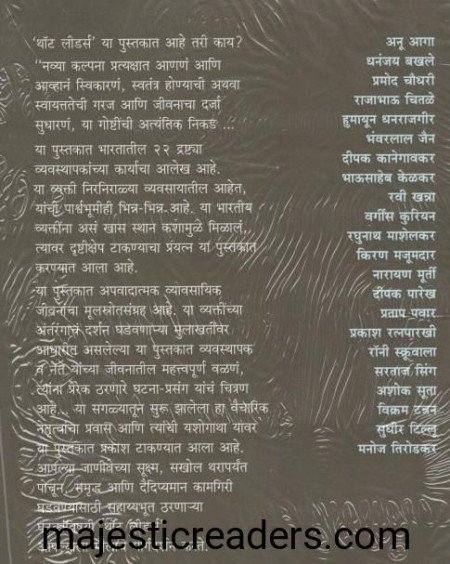 'थॉट लीडर्स' या पुस्तकात आहे तरी काय?
"नव्या कल्पना प्रत्यक्षात आणणं आणि
आव्हानं स्विकारणं, स्वतंत्र होण्याची अथवा
स्वायत्ततेची गरज आणि जीवनाचा दर्जा
सुधारणं, या गोष्टींची अत्यंतिक निकड ...
या पुस्तकात भारतातील २२ द्रष्ट्या
व्यवस्थापकांच्या कार्याचा आलेख आहे.
या व्यक्ती निरनिराळ्या व्यवसायातील आहेत,
यांची पार्श्वभूमीही भिन्न-भिन्न आहे. या भारतीय
व्यक्तींना असं खास स्थान कशामुळे मिळालं,
त्यावर दृष्टीक्षेप टाकण्याचा प्रयत्न या पुस्तकात
करण्यात आला आहे.
या पुस्तकात अपवादात्मक व्यावसायिक
जीवनाचा मूलस्रोतसंग्रह आहे. या व्यक्तींच्या
अंतरंगाचं दर्शन घडवणाऱ्या मुलाखतींवर
आधारीत असलेल्या या पुस्तकात व्यवस्थापक
व नेते यांच्या जीवनातील महत्त्वपूर्ण वळणं,
त्यांना प्रेरक ठरणारे घटना-प्रसंग यांचं चित्रण
आहे... या सगळ्यातून सुरू झालेला हा वैचारिक
नेतृत्वाचा प्रवास आणि त्यांची यशोगाथा यांवर
या पुस्तकात प्रकाश टाकण्यात आला आहे.
आपल्या जाणीवेच्या सूक्ष्म, सखोल थरापर्यंत
पोचून, समृद्ध आणि दैदिप्यमान कामगिरी
घडवण्यासाठी सहाय्यभूत ठरणाऱ्या
अनू आगा
धनंजय बखले
प्रमोद चौधरी
राजाभाऊ चितळे
हुमायून धनराजगीर
भंवरलाल जैन
दीपक कानेगावकर
भाऊसाहेब केळकर
रवी खन्ना
वर्गीस कुरियन
रघुनाथ माशेलकर
किरण मजूमदार
नारायण मूर्ती
दीपक पारेख
प्रताप पवार
प्रकाश रत्नपारखी
रॉनी स्क्रूवाला
सरताज सिंग
अशोक सूता
विक्रम टन्नन
सुधीर टिल्लू
मनोज तिरोडकर
majesticreaders.com